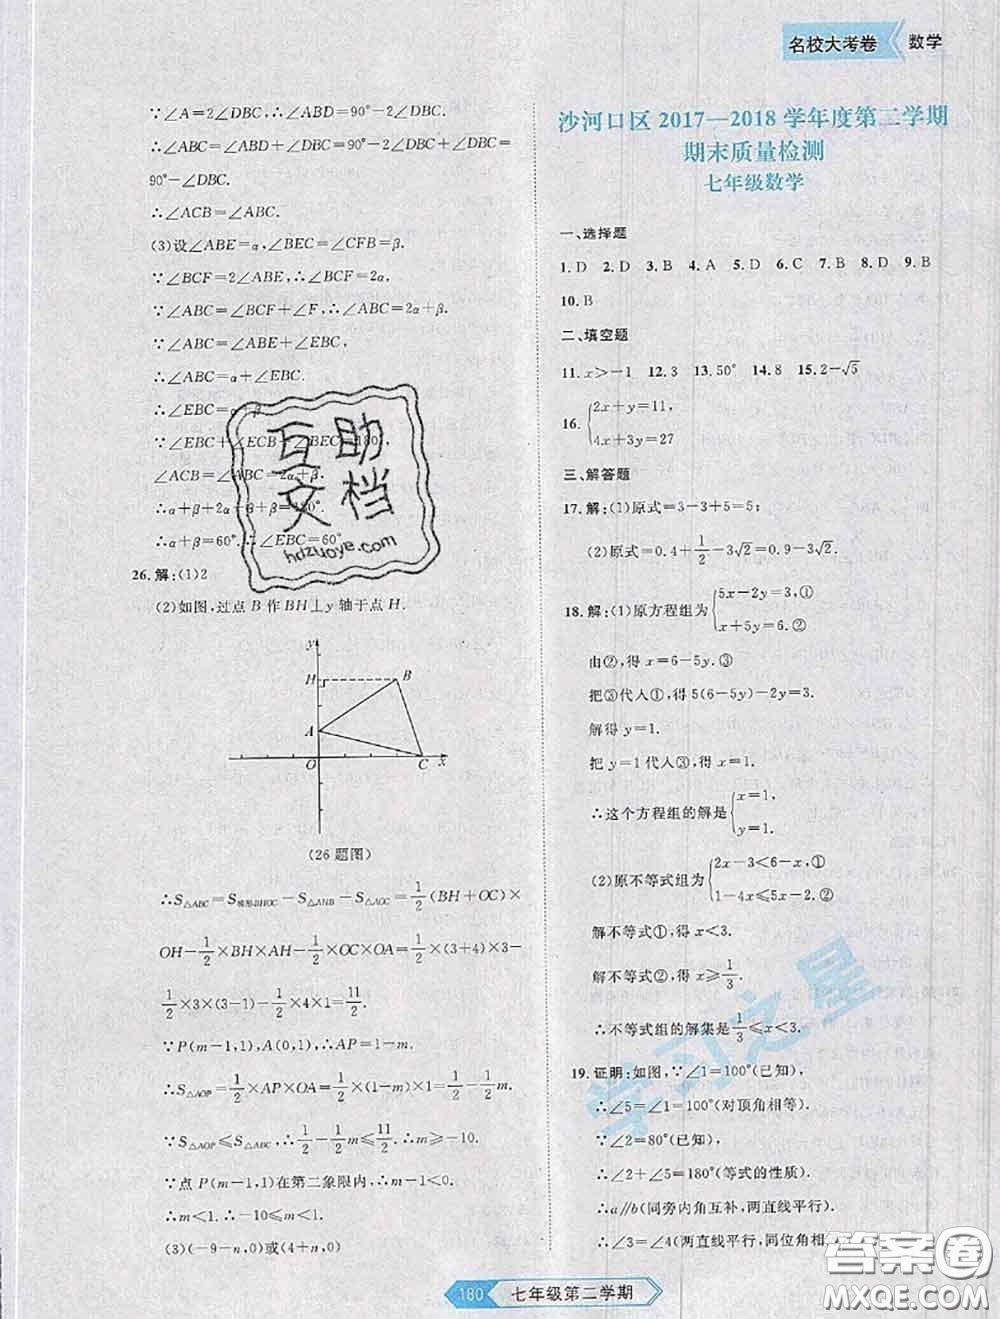 名校大考卷 数学
∵∠A=2∠DBC,∴∠ABD=90°-2∠DBC.
∴∠ABC=∠ABD+∠DBC=90°-2∠DBC+∠DBC=
90°-∠DBC.
∴∠ACB=∠ABC.
(3)设∠ABE=α,∠BEC=∠CFB=β.
∵∠BCF=2∠ABE,∴∠BCF=2α.
∵∠ABC=∠BCF+∠F,∴∠ABC=2α+β.
∵∠ABC=∠ABE+∠EBC,
∴∠ABC=α+∠EBC.
∴∠EBC=α+β.
∵∠EBC+∠ECB+∠BEC=180°,
∠ACB=∠ABC=2α+β,
∴α+β+2α+β+β=180°.
∴α+β=60°.∴∠EBC=60°.
互助
文档
hdzuoye.com
26.解:(1)2
(2)如图,过点B作BH⊥y轴于点H.
y
H B
A
O C x
(26题图)
∴S△ABC=S梯形BHOC-S△AHB-S△AOC=1/2(BH+OC)×
OH-1/2×BH×AH-1/2×OC×OA=1/2×(3+4)×3-
1/2×3×(3-1)-1/2×4×1=11/2.
∵P(m-1,1),A(0,1),∴AP=1-m.
∴S△AOP=1/2×AP×OA=1/2×(1-m)×1=1/2-1/2m.
∵S△AOP≤S△ABC,∴1/2-1/2m≤11/2.∴m≥-10.
∵点P(m-1,1)在第二象限内,∴m-1<0.
∴m<1.∴-10≤m<1.
(3)(-9-n,0)或(4+n,0)
沙河口区2017—2018学年度第二学期
期末质量检测
七年级数学
一、选择题
1.D 2.D 3.B 4.A 5.D 6.C 7.B 8.D 9.B
10.B
二、填空题
11.x>-1 12.3 13.50° 14.8 15.2-√5
16.{2x+y=11,
4x+3y=27
三、解答题
17.解:(1)原式=3-3+5=5;
(2)原式=0.4+1/2-3√2=0.9-3√2.
18.解:(1)原方程组为{5x-2y=3,①
x+5y=6.②
由②,得x=6-5y.③
把③代人①,得5(6-5y)-2y=3.
解得y=1.
把y=1代人③,得x=1.
∴这个方程组的解是{x=1,
y=1.
(2)原不等式组为{2x-3<6-x,①
1-4x≤5x-2.②
解不等式①,得x<3.
解不等式②,得x≥1/3.
∴不等式组的解集是1/3≤x<3.
19.证明:如图,∵∠1=100°(已知),
∴∠5=∠1=100°(对顶角相等).
∵∠2=80°(已知),
∴∠2+∠5=180°(等式的性质).
∴a∥b(同旁内角互补,两直线平行).
∴∠3=∠4(两直线平行,同位角相
学习之星
答案圈
MXQE.COM
180 七年级第二学期